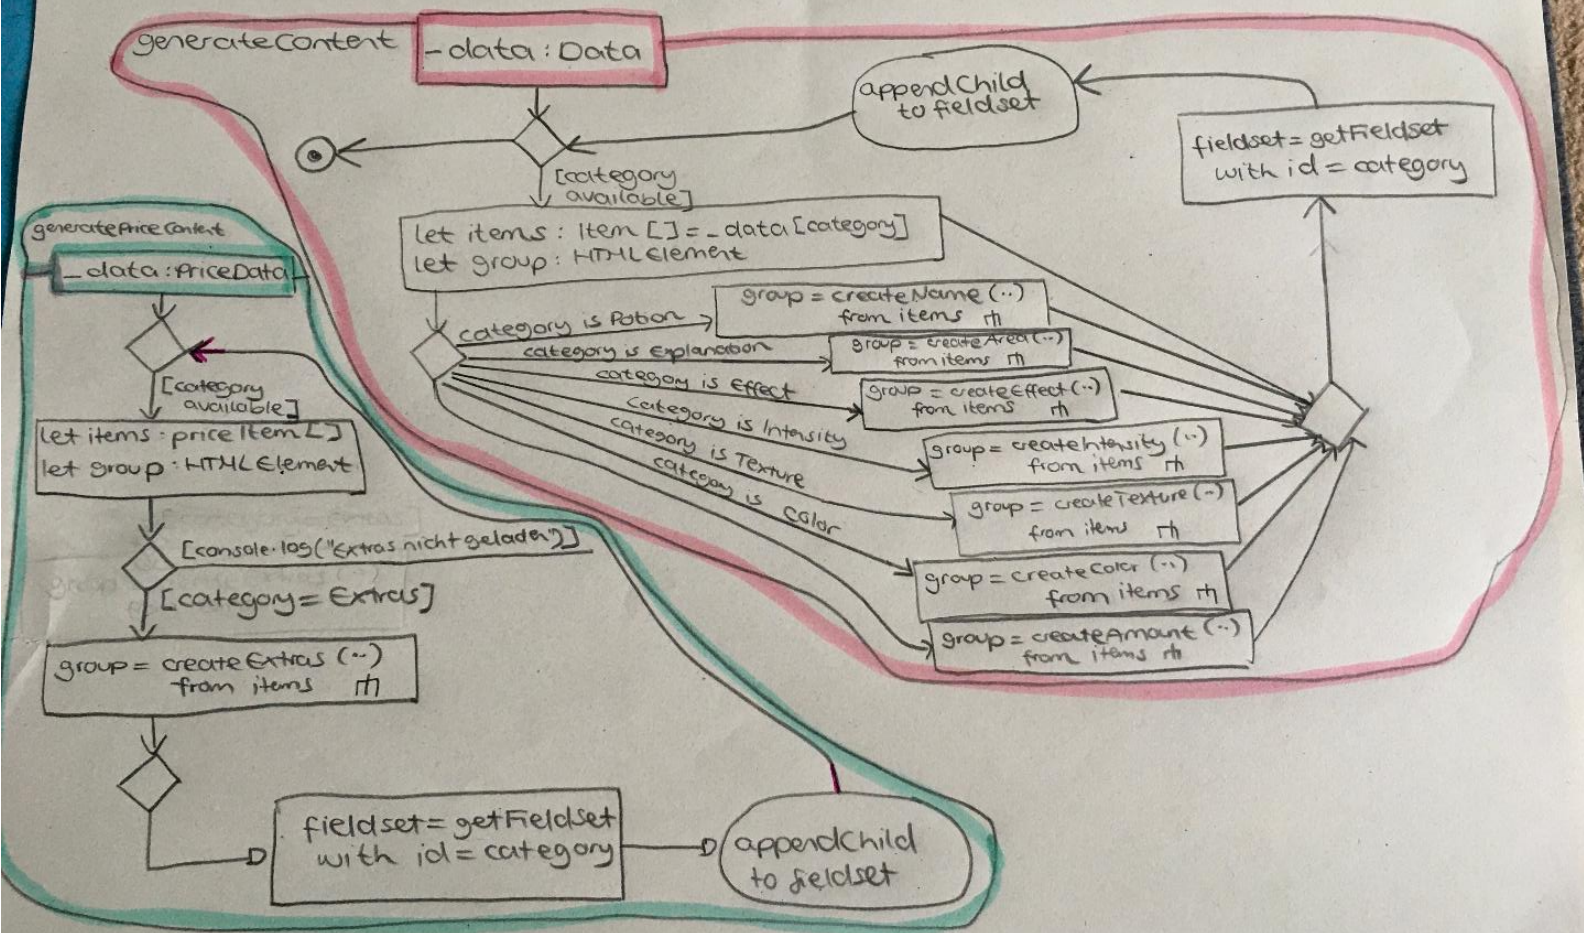 generateContent
_data : Data
[category
available]
let items : Item [] = _data [category]
let group : HTMLElement
category is Potion
group = createName (..)
from items
category is Explanation
group = createArea (..)
from items
category is Effect
group = createEffect (..)
from items
category is Intensity
group = createIntensity (..)
from items
category is Texture
group = createTexture (..)
from items
category is Color
group = createColor (..)
from items
group = createAmount (..)
from items
fieldset = getFieldset
with id = category
appendChild
to fieldset
generatePriceContent
_data : PriceData
[category
available]
let items : priceItem []
let group : HTMLElement
[console.log("Extras nicht geladen")]
[category = Extras]
group = createExtras (..)
from items
fieldset = getFieldset
with id = category
appendChild
to fieldset